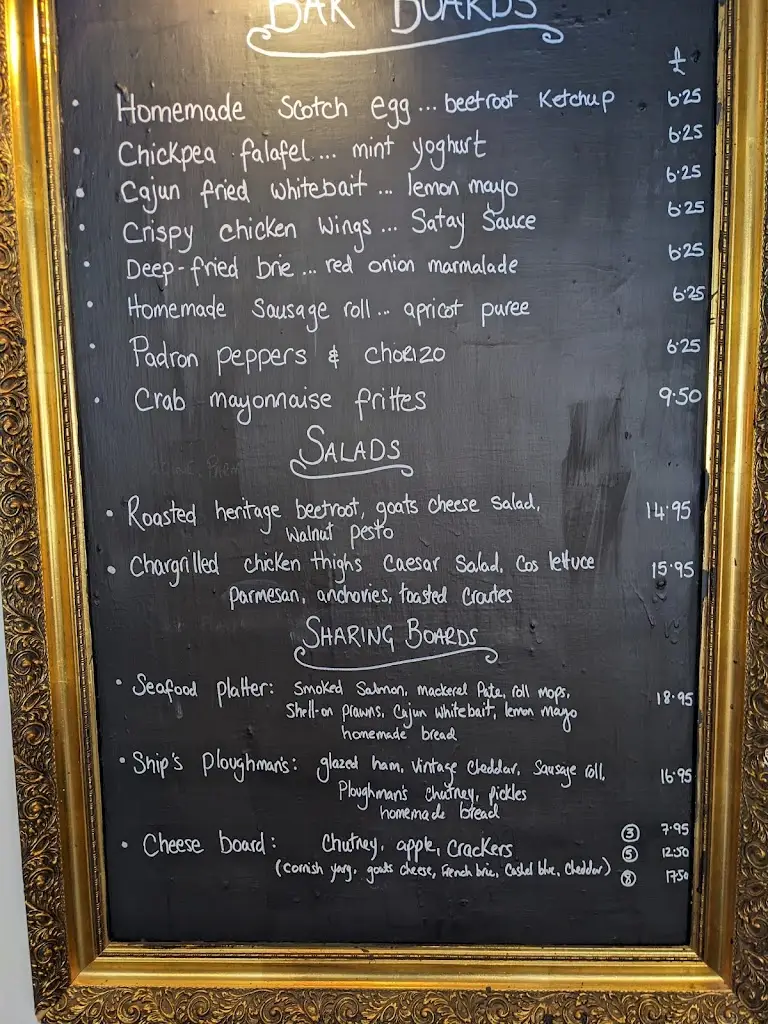 BAR BOARDS
£
• Homemade Scotch egg... beetroot Ketchup 6.25
• Chickpea falafel... mint yoghurt 6.25
• Cajun fried whitebait ... lemon mayo 6.25
• Crispy chicken Wings... Satay Sauce 6.25
• Deep-fried brie ... red onion marmalade 6.25
• Homemade Sausage roll... apricot puree 6.25
• Padron peppers & CHORIZO 6.25
• Crab mayonnaise frittes 9.50
SALADS
• Roasted heritage beetroot, goats cheese salad, 14.95
Walnut pesto
• Chargrilled chicken thighs Caesar Salad, Cos lettuce 15.95
Parmesan, anchovies, toasted Croutes
SHARING BOARDS
• Seafood platter: Smoked Salmon, mackerel Pate, roll mops, 18.95
Shell-on prawns, Cajun whitebait, lemon mayo
homemade bread
• Ship's Ploughman's: glazed ham, vintage cheddar, Sausage roll, 16.95
Ploughman's chutney, pickles
homemade bread
• Cheese board: Chutney, apple, Crackers ③ 7.95
⑤ 12.50
(Cornish yarg, goats cheese, French brie, Castel blue, Cheddar) ⑧ 17.50